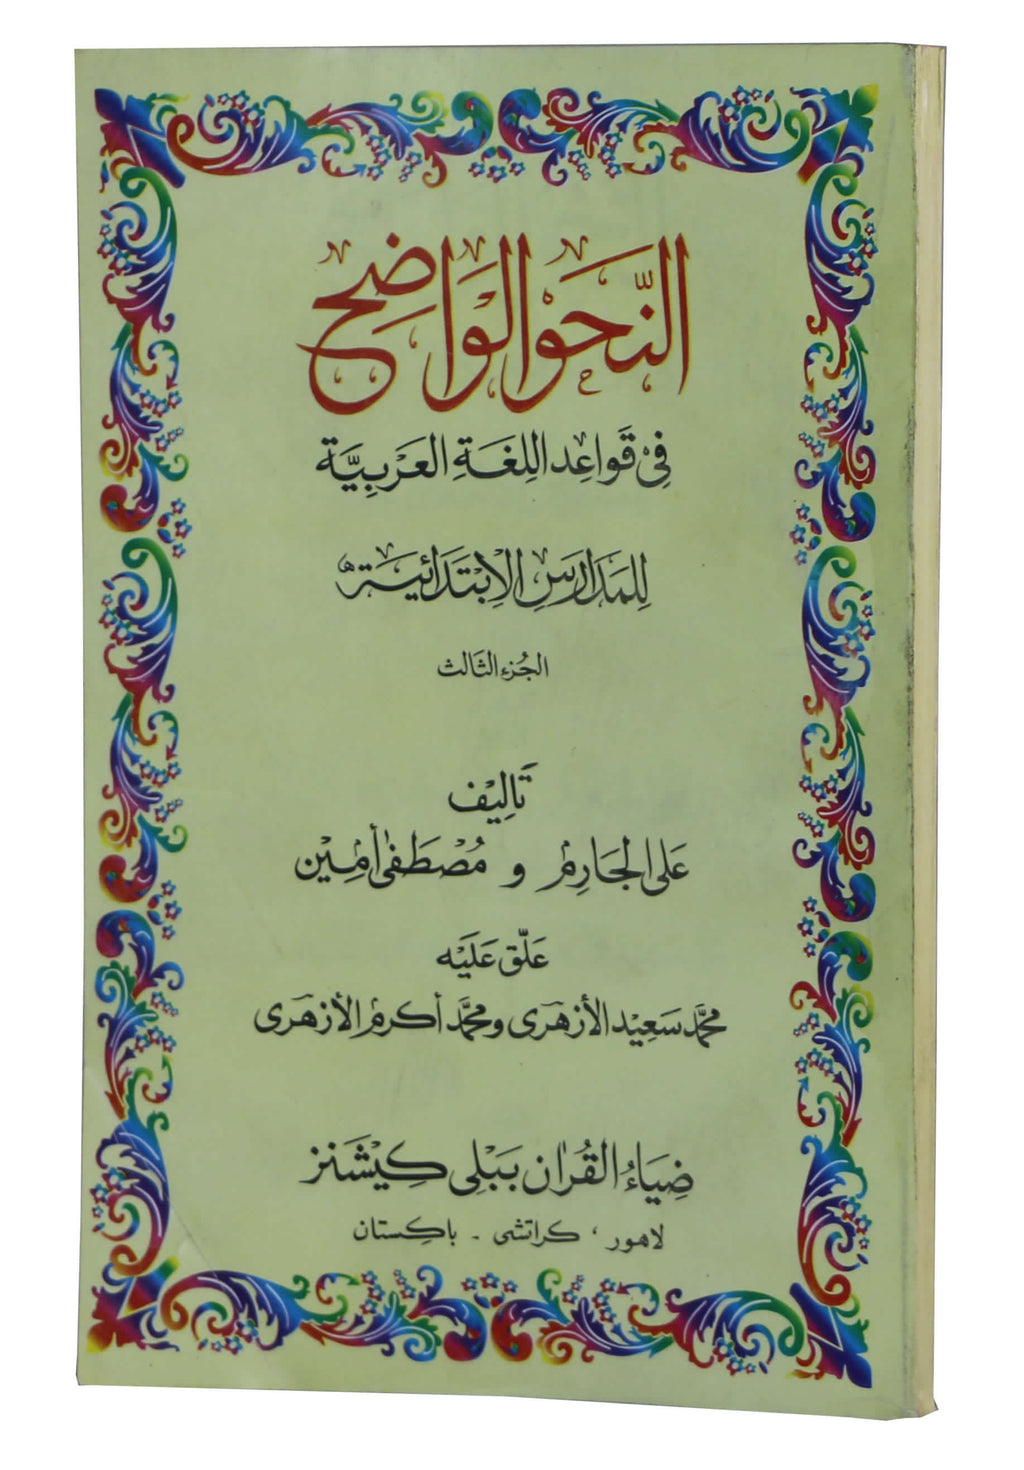 النَّحَو الوَاضِح
فِي قَوَاعِد اللِغَةِ العَرَبِيَّة
لِلمَدَارِسِ الاِبْتَدَائِيَة
الجُزء الثَالث
تَالِيْف
عَلى الجَارِم و مُصْطَفٰى أمِيْن
عَلّق عَلَيْه
محمَّد سَعِيْد الأزهَرى ومحمَّد أكرم الأزهَرى
ضِيَاءُ القُرآن پَبْلِى كِيْشَنز
لاهور ، كراتشى - باكستان